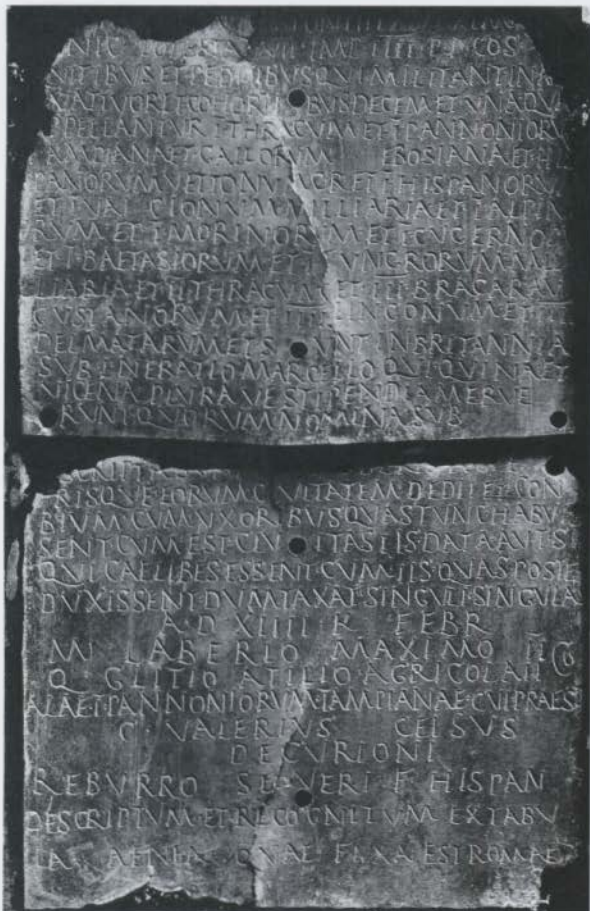 NIC POTESTAT VII IMP IIII P P COS
NITIBVS ET PEDITIBVS QVI MILITANT IN
VATTVOR ET COHORTIBVS DECEM ET VNA QVA
PELLANTVR I THRACVM ET I PANNONIORV
TAMPIANA ET GALLORVM EBOSIANA ET HIS
PANORVM VETTONVM C R ET I HISPANORVM
ET I VA CIONVM MILLIARIA ET I ALPIN
RVM ET I MORINORVM ET I CVCERNO
ET I BAETASIORVM ET I TVNCRORVM MI
LIARIA ET II THRACVM ET III BRACARAV
CVSTANORVM ET III LINCONVM ET IIII
DELMATARVM ET S VNT IN BRITANNIA
SVB L NERATIO MARCELLO QVI QVINA ET
VICENA PLVRAVE STIPENDIA MERVE
RVNT QVORVM NOMINA SVB
RISQVE EORVM CIVITATEM DEDIT ET CON
BIVM CVM VXORIBVS QVAS TVNC HABVIS
SENT CVM EST CIVITAS IIS DATA AVT SI
QVI CAELIBES ESSENT CVM IIS QVAS POSTE
DVXISSENT DVMTAXAT SINGVLI SINGVLA
A D XIIII K FEBR
M LABERIO MAXIMO II
Q GLITIO ATILIO AGRICOLA II COS
ALAE I PANNONIORVM TAMPIANAE CVI PRAEST
C VALERIVS CELSVS
DECVRIONI
REBVRRO SEVERI F HISPAN
DESCRIPTVM ET RECOGNITVM EX TABV
LA AENEA QVAE FIXA EST ROMAE